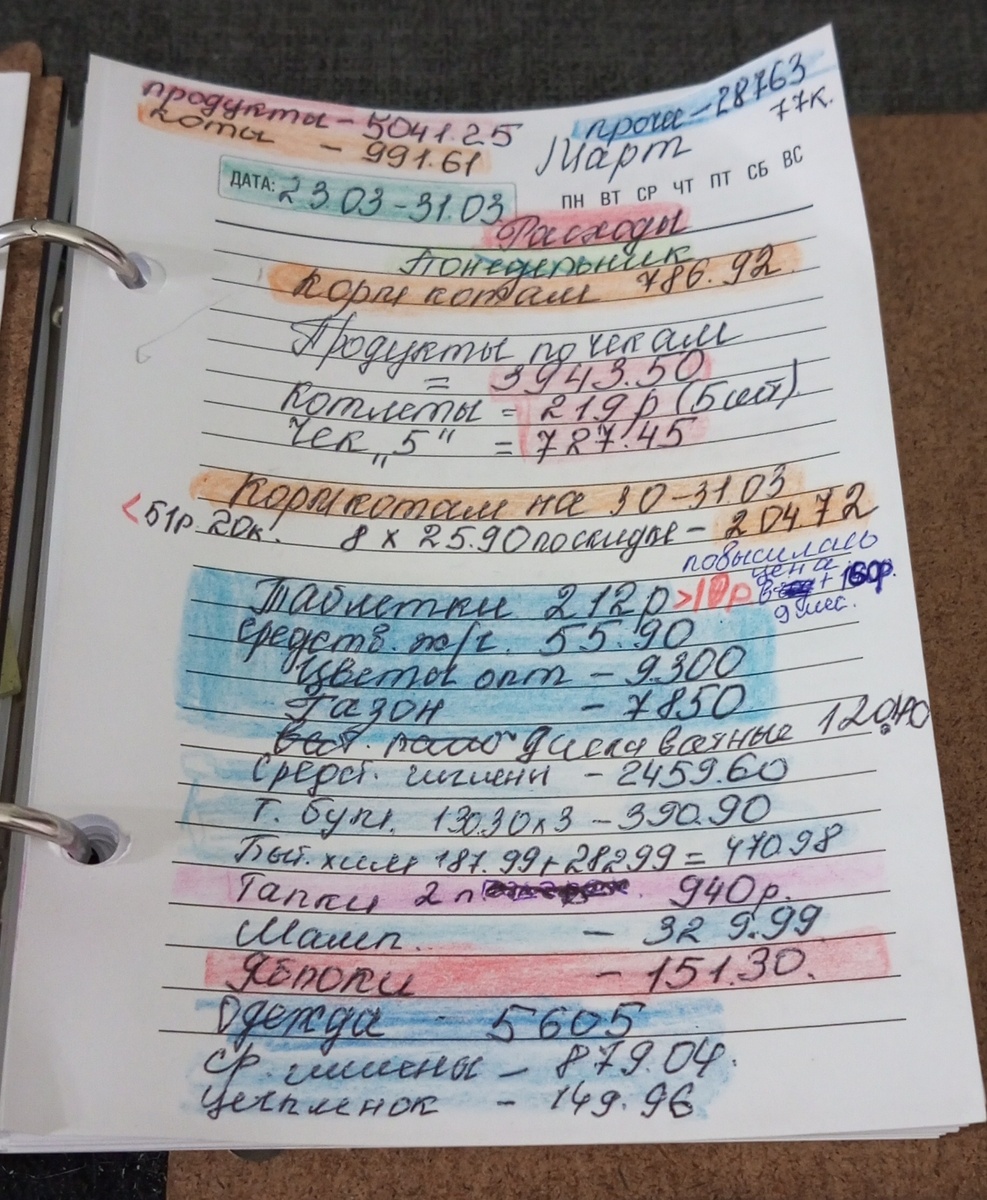 продукты - 5041.25
коты - 991.61
проч - 28763
77к.
Март
ДАТА: 23.03-31.03
ПН ВТ СР ЧТ ПТ СБ ВС
Расходы
Понедельник
Корм котам 786.92
Продукты по чекам
= 3943.50
Котлеты = 219р (5 шт)
Чек „5" = 787.45
Корм котам на 30-31.03
<51р.20к. 8 x 25.90 по скидке - 204.72
повысилась
цена
Таблетки 212р >10р + 160р.
9 мес.
средств. ж/г. 55.90
Цветы опт - 9.300
Газон - 7850
диски ватные 120.40
Средст. гигиены - 2459.60
Т. бум. 130.30x3 - 390.90
Быт. хим 187.99+282.99 = 470.98
Тапки 2 п 940р.
Шамп. - 329.99
Яблоки - 151.30.
Одежда - 5605
Ср. гигиены - 879.04.
- 149.96